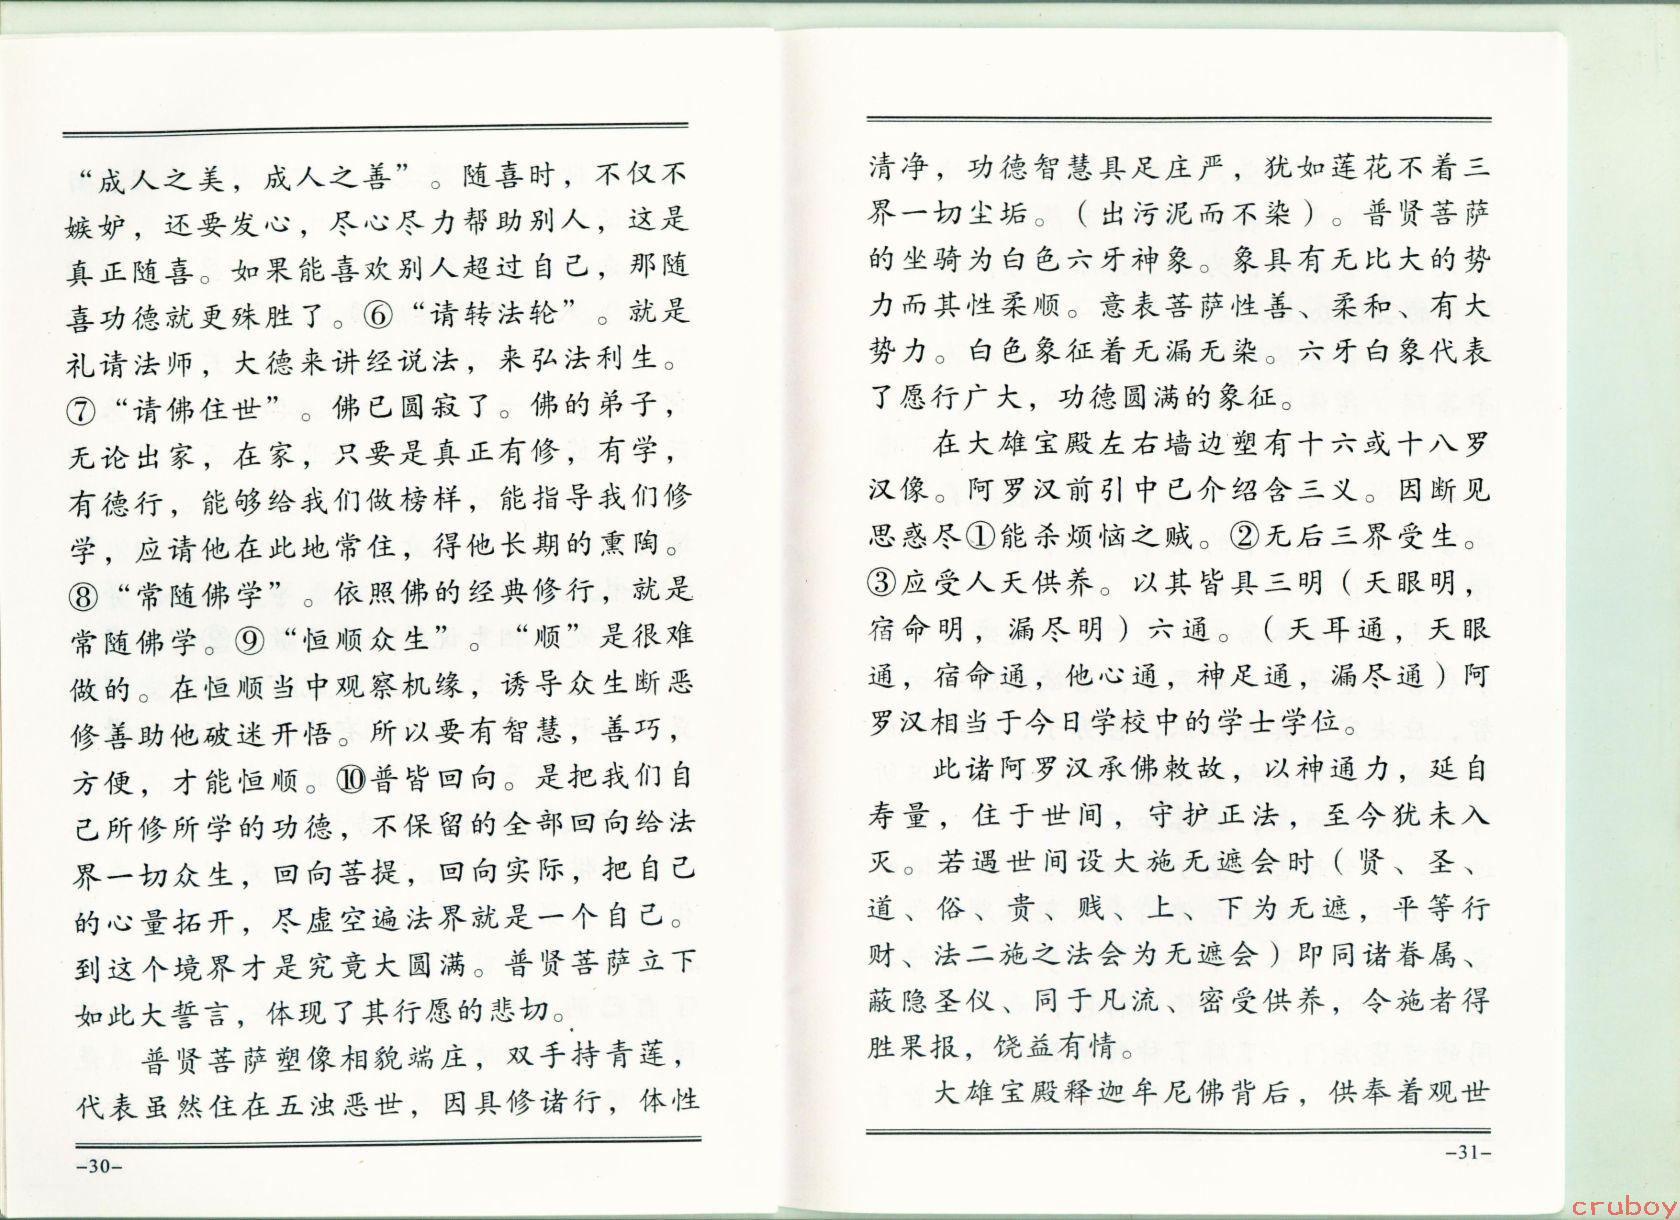 “成人之美，成人之善”。随喜时，不仅不
嫉妒，还要发心，尽心尽力帮助别人，这是
真正随喜。如果能喜欢别人超过自己，那随
喜功德就更殊胜了。⑥“请转法轮”。就是
礼请法师，大德来讲经说法，来弘法利生。
⑦“请佛住世”。佛已圆寂了。佛的弟子，
无论出家，在家，只要是真正有修，有学，
有德行，能够给我们做榜样，能指导我们修
学，应请他在此地常住，得他长期的熏陶。
⑧“常随佛学”。依照佛的经典修行，就是
常随佛学。⑨“恒顺众生”。“顺”是很难
做的。在恒顺当中观察机缘，诱导众生断恶
修善助他破迷开悟。所以要有智慧，善巧，
方便，才能恒顺。⑩普皆回向。是把我们自
己所修所学的功德，不保留的全部回向给法
界一切众生，回向菩提，回向实际，把自己
的心量拓开，尽虚空遍法界就是一个自己。
到这个境界才是究竟大圆满。普贤菩萨立下
如此大誓言，体现了其行愿的悲切。
普贤菩萨塑像相貌端庄，双手持青莲，
代表虽然住在五浊恶世，因具修诸行，体性
-30-
清净，功德智慧具足庄严，犹如莲花不着三
界一切尘垢。（出污泥而不染）。普贤菩萨
的坐骑为白色六牙神象。象具有无比大的势
力而其性柔顺。意表菩萨性善、柔和、有大
势力。白色象征着无漏无染。六牙白象代表
了愿行广大，功德圆满的象征。
在大雄宝殿左右墙边塑有十六或十八罗
汉像。阿罗汉前引中已介绍含三义。因断见
思惑尽①能杀烦恼之贼。②无后三界受生。
③应受人天供养。以其皆具三明（天眼明，
宿命明，漏尽明）六通。（天耳通，天眼
通，宿命通，他心通，神足通，漏尽通）阿
罗汉相当于今日学校中的学士学位。
此诸阿罗汉承佛敕故，以神通力，延自
寿量，住于世间，守护正法，至今犹未入
灭。若遇世间设大施无遮会时（贤、圣、
道、俗、贵、贱、上、下为无遮，平等行
财、法二施之法会为无遮会）即同诸眷属、
蔽隐圣仪、同于凡流、密受供养，令施者得
胜果报，饶益有情。
大雄宝殿释迦牟尼佛背后，供奉着观世
-31-
cruboy